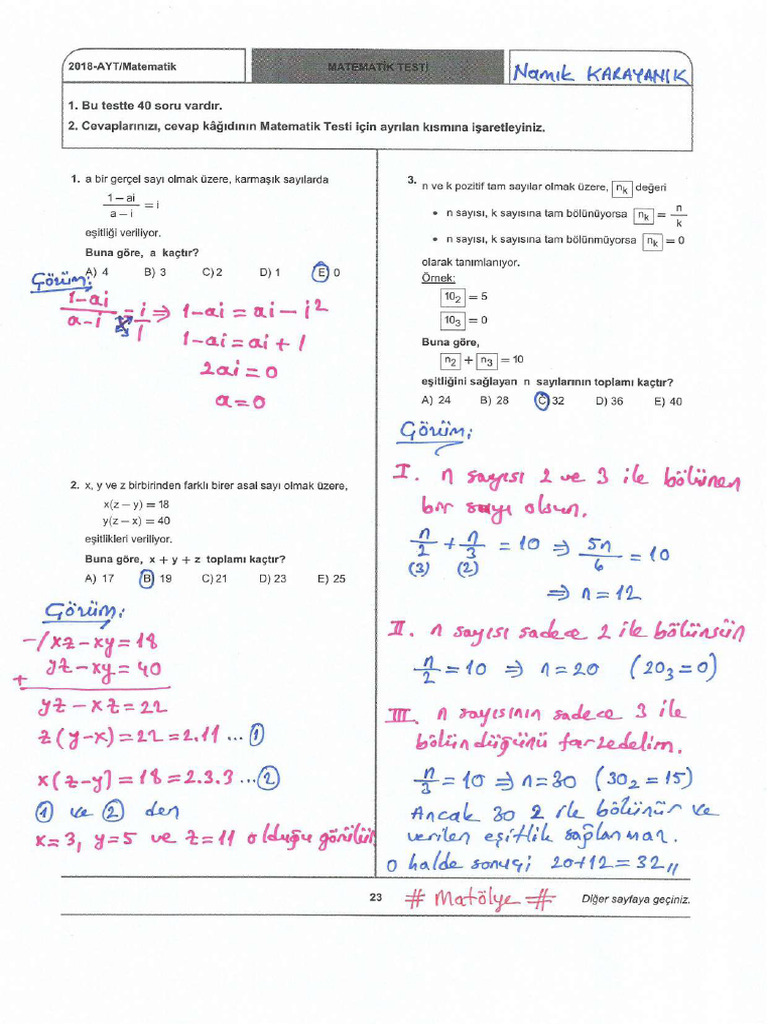 2018-AYT/Matematik
MATEMATİK TESTİ
Namık KARAYANIK
1. Bu testte 40 soru vardır.
2. Cevaplarınızı, cevap kâğıdının Matematik Testi için ayrılan kısmına işaretleyiniz.
1. a bir gerçel sayı olmak üzere, karmaşık sayılarda
(1 − ai)/(a − i) = i
eşitliği veriliyor.
Buna göre, a kaçtır?
A) 4 B) 3 C) 2 D) 1 E) 0
Çözüm:
(1-ai)/(a-i) = i/1 ⇒ 1-ai = ai - i²
1-ai = ai + 1
2ai = 0
a = 0
2. x, y ve z birbirinden farklı birer asal sayı olmak üzere,
x(z − y) = 18
y(z − x) = 40
eşitlikleri veriliyor.
Buna göre, x + y + z toplamı kaçtır?
A) 17 B) 19 C) 21 D) 23 E) 25
Çözüm:
-/ xz - xy = 18
+ yz - xy = 40
yz - xz = 22
z(y-x) = 22 = 2.11 ... ①
x(z-y) = 18 = 2.3.3 ... ②
① ve ② den
x=3, y=5 ve z=11 olduğu görülür
3. n ve k pozitif tam sayılar olmak üzere, n_k değeri
• n sayısı, k sayısına tam bölünüyorsa n_k = n/k
• n sayısı, k sayısına tam bölünmüyorsa n_k = 0
olarak tanımlanıyor.
Örnek:
10₂ = 5
10₃ = 0
Buna göre,
n₂ + n₃ = 10
eşitliğini sağlayan n sayılarının toplamı kaçtır?
A) 24 B) 28 C) 32 D) 36 E) 40
Çözüm:
I. n sayısı 2 ve 3 ile bölünen
bir sayı olsun.
n/2 + n/3 = 10 ⇒ 5n/6 = 10
(3) (2)
⇒ n = 12
II. n sayısı sadece 2 ile bölünsün
n/2 = 10 ⇒ n = 20 (20₃ = 0)
III. n sayısının sadece 3 ile
bölündüğünü farzedelim.
n/3 = 10 ⇒ n = 30 (30₂ = 15)
Ancak 30 2 ile bölünür ve
verilen eşitlik sağlanmaz.
O halde sonuç; 20+12 = 32,,
23
# Matölye #
Diğer sayfaya geçiniz.